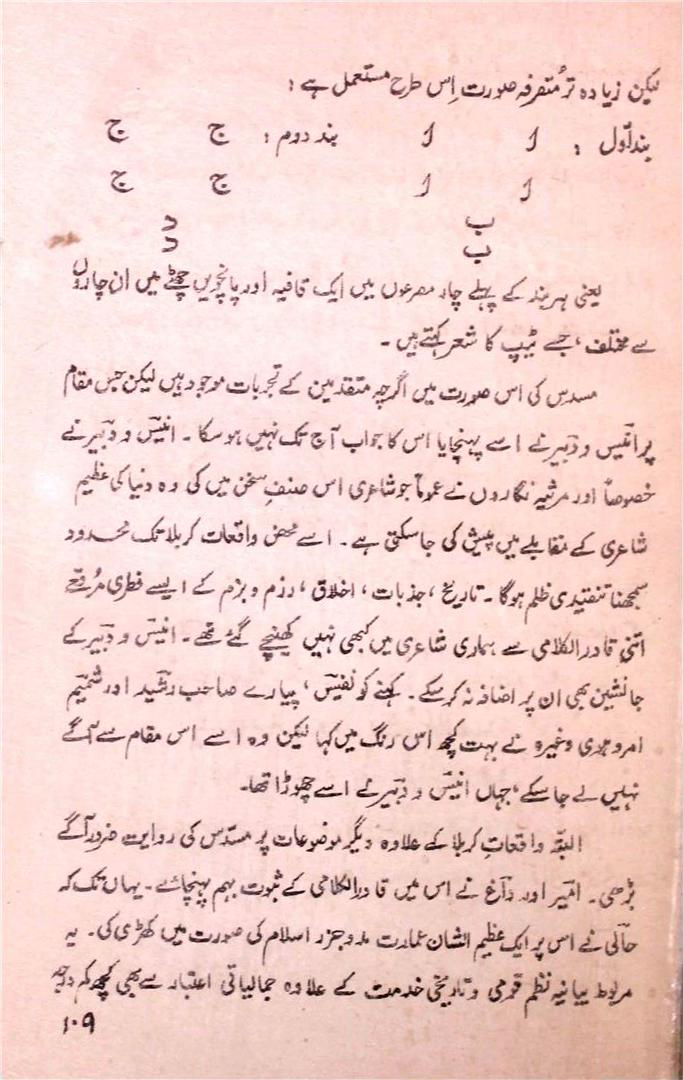 لیکن زیادہ تر مُتصرفہ صورت اِس طرح مستعمل ہے :
بند اوّل : ا ا بند دوم : ج ج
ا ا ج ج
ب د
ب د
یعنی ہر بند کے پہلے چار مصرعوں میں ایک قافیہ اور پانچویں چھٹے میں ان چاروں
سے مختلف ، جسے ٹیپ کا شعر کہتے ہیں ۔
مسدس کی اس صورت میں اگرچہ متقدمین کے تجربات موجود ہیں لیکن جس مقام
پر انیسؔ و دبیرؔ نے اسے پہنچایا اس کا جواب آج تک نہیں ہو سکا ۔ انیسؔ و دبیرؔ نے
خصوصاً اور مرثیہ نگاروں نے عموماً جو شاعری اس صنفِ سخن میں کی وہ دنیا کی عظیم
شاعری کے مقابلے میں پیش کی جا سکتی ہے ۔ اسے محض واقعات کربلا تک محدود
سمجھنا تنقیدی ظلم ہوگا ۔ تاریخ ، جذبات ، اخلاق ، رزم و بزم کے ایسے فطری مُرقعے
اتنی قادر الکلامی سے ہماری شاعری میں کبھی نہیں کھینچے گئے تھے ۔ انیسؔ و دبیرؔ کے
جانشین بھی ان پر اضافہ نہ کر سکے ۔ کہنے کو نفیسؔ ، پیارے صاحب رشیدؔ اور شمیمؔ
امروہوی وغیرہ نے بہت کچھ اس رنگ میں کہا لیکن وہ اسے اس مقام سے آگے
نہیں لے جا سکے ، جہاں انیسؔ و دبیرؔ نے اسے چھوڑا تھا۔
البتہ واقعاتِ کربلا کے علاوہ دیگر موضوعات پر مسدّس کی روایت ضرور آگے
بڑھی ۔ امیرؔ اور داغؔ نے اس میں قادر الکلامی کے ثبوت بہم پہنچائے ۔ یہاں تک کہ
حالیؔ نے اس پر ایک عظیم الشان عمارت مدو جزر اسلام کی صورت میں کھڑی کی ۔ یہ
مربوط بیانیہ نظم قومی و تاریخی خدمت کے علاوہ جمالیاتی اعتبار سے بھی کچھ کم درجہ
۱۰۹